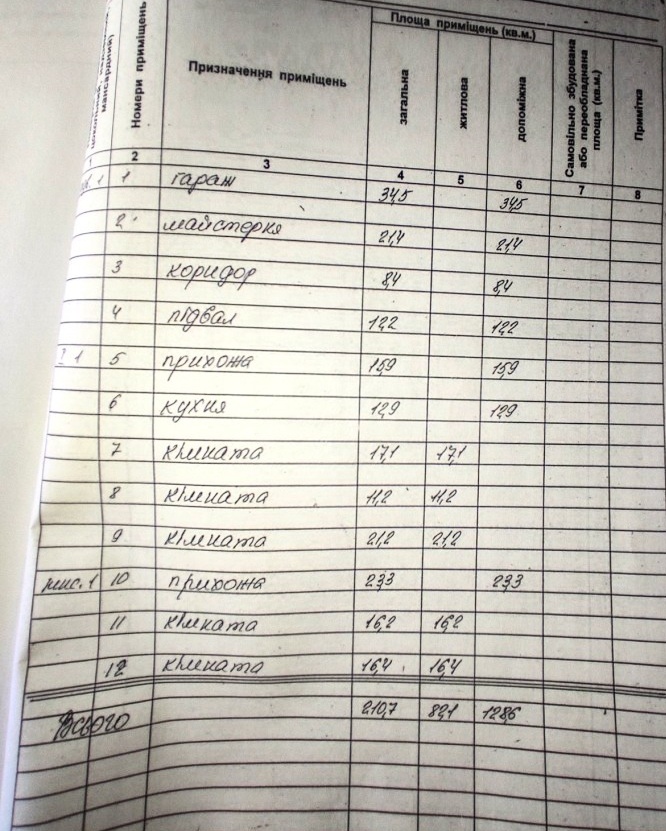 Площа приміщень (кв.м.)
мансардний)
Номери приміщень
Призначення приміщень
загальна
житлова
допоміжна
Самовільно збудована або переобладнана площа (кв.м.)
Примітка
1 2 3 4 5 6 7 8
1 1 гараж 34,5 34,5
2 майстерня 21,4 21,4
3 коридор 8,4 8,4
4 підвал 12,2 12,2
1 5 прихожа 15,9 15,9
6 кухня 12,9 12,9
7 кімната 17,1 17,1
8 кімната 11,2 11,2
9 кімната 21,2 21,2
манс. 1 10 прихожа 23,3 23,3
11 кімната 16,2 16,2
12 кімната 16,4 16,4
Всього 210,7 82,1 128,6